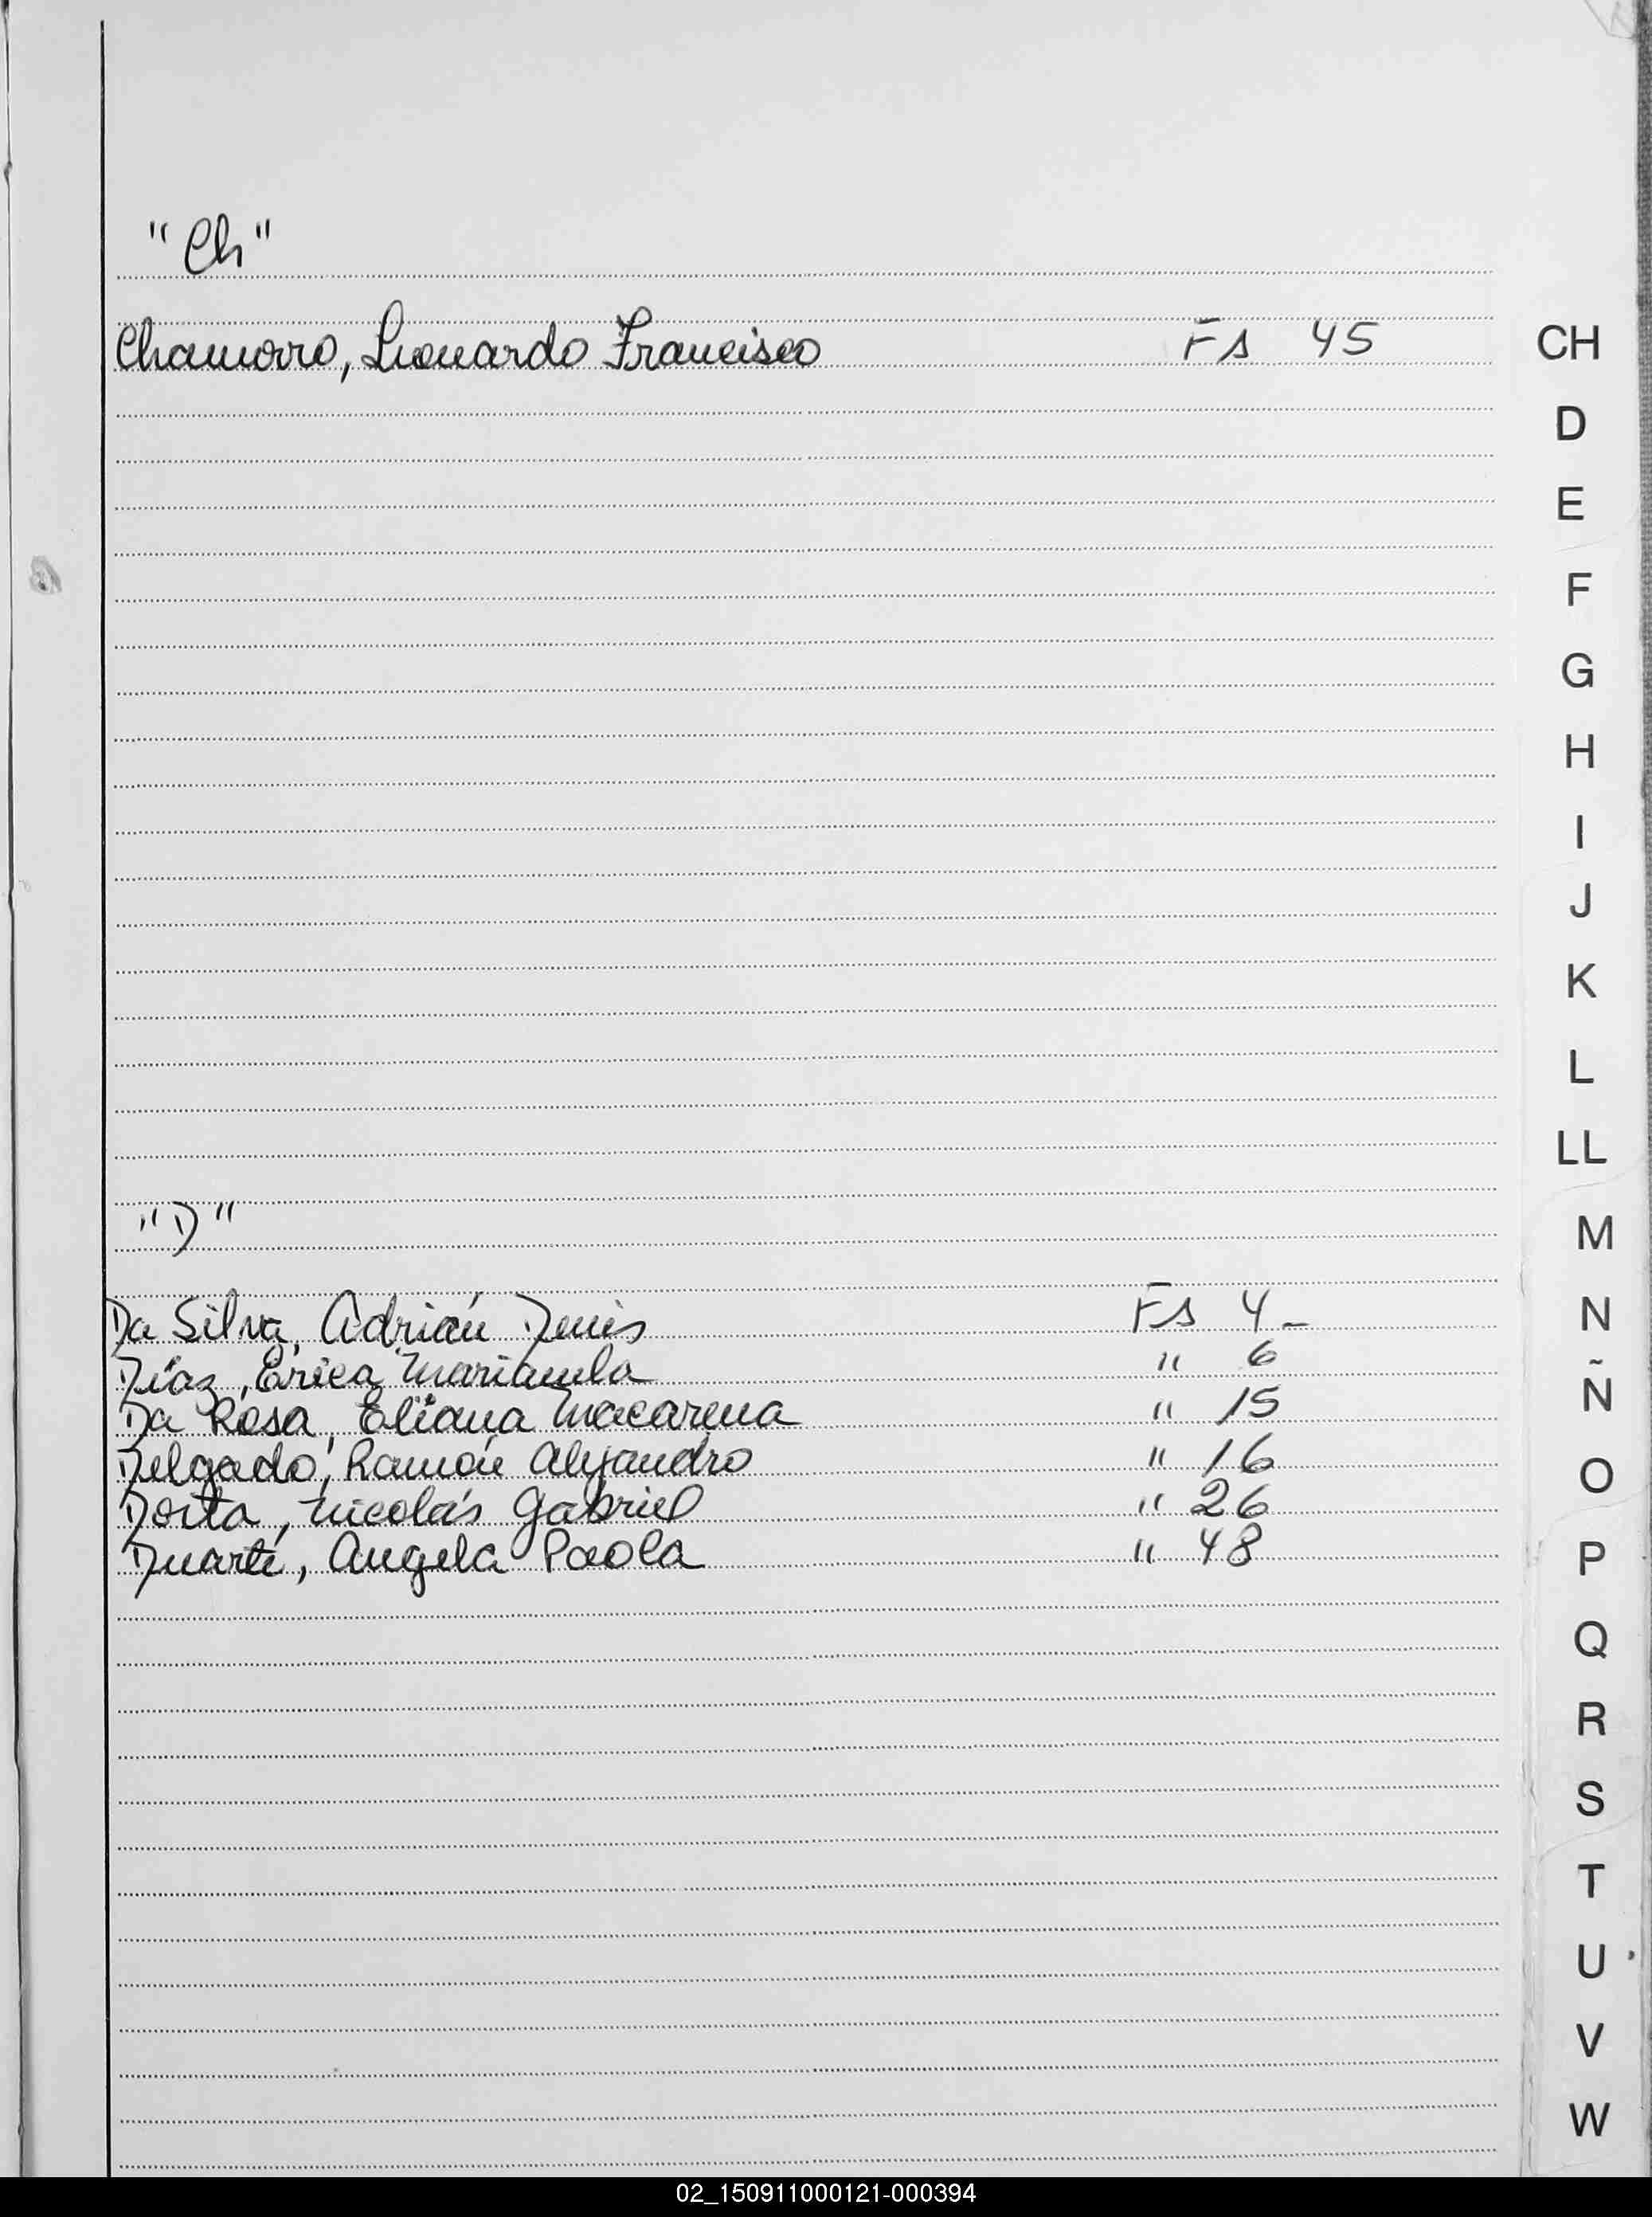 "Ch"
Chamorro, Leonardo Francisco FS 45
"D"
Da Silva, Adrián Denis FS 4 -
Díaz, Érica Marianela " 6
Da Rosa, Eliana Macarena " 15
Delgado, Ramón Alejandro " 16
Dorta, Nicolás Gabriel " 26
Duarte, Angela Paola " 48
CH
D
E
F
G
H
I
J
K
L
LL
M
N
Ñ
O
P
Q
R
S
T
U
V
W
02_150911000121-000394